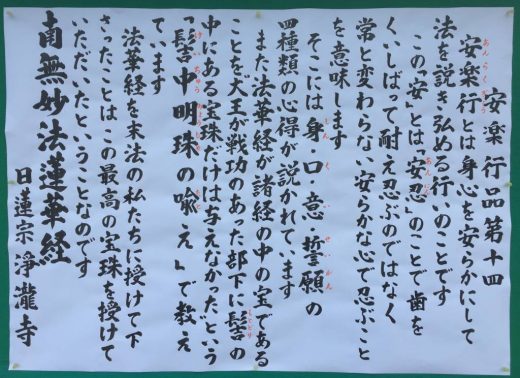 安楽行品第十四
安楽行とは身心を安らかにして
法を説き弘める行いのことです
この「安」とは「安忍」のことで歯を
くいしばって耐え忍ぶのではなく
常と変わらない安らかな心で忍ぶこと
を意味します
そこには身・口・意・誓願の
四種類の心得が説かれています
また法華経が諸経の中の宝である
ことを「大王が戦功のあった部下に髻の
中にある宝珠だけは与えなかったという
「髻中明珠の喩え」で教え
ています
法華経を末法の私たちに授けて下
さったことはこの最高の宝珠を授けて
いただいたということなのです
南無妙法蓮華経
日蓮宗浄瀧寺